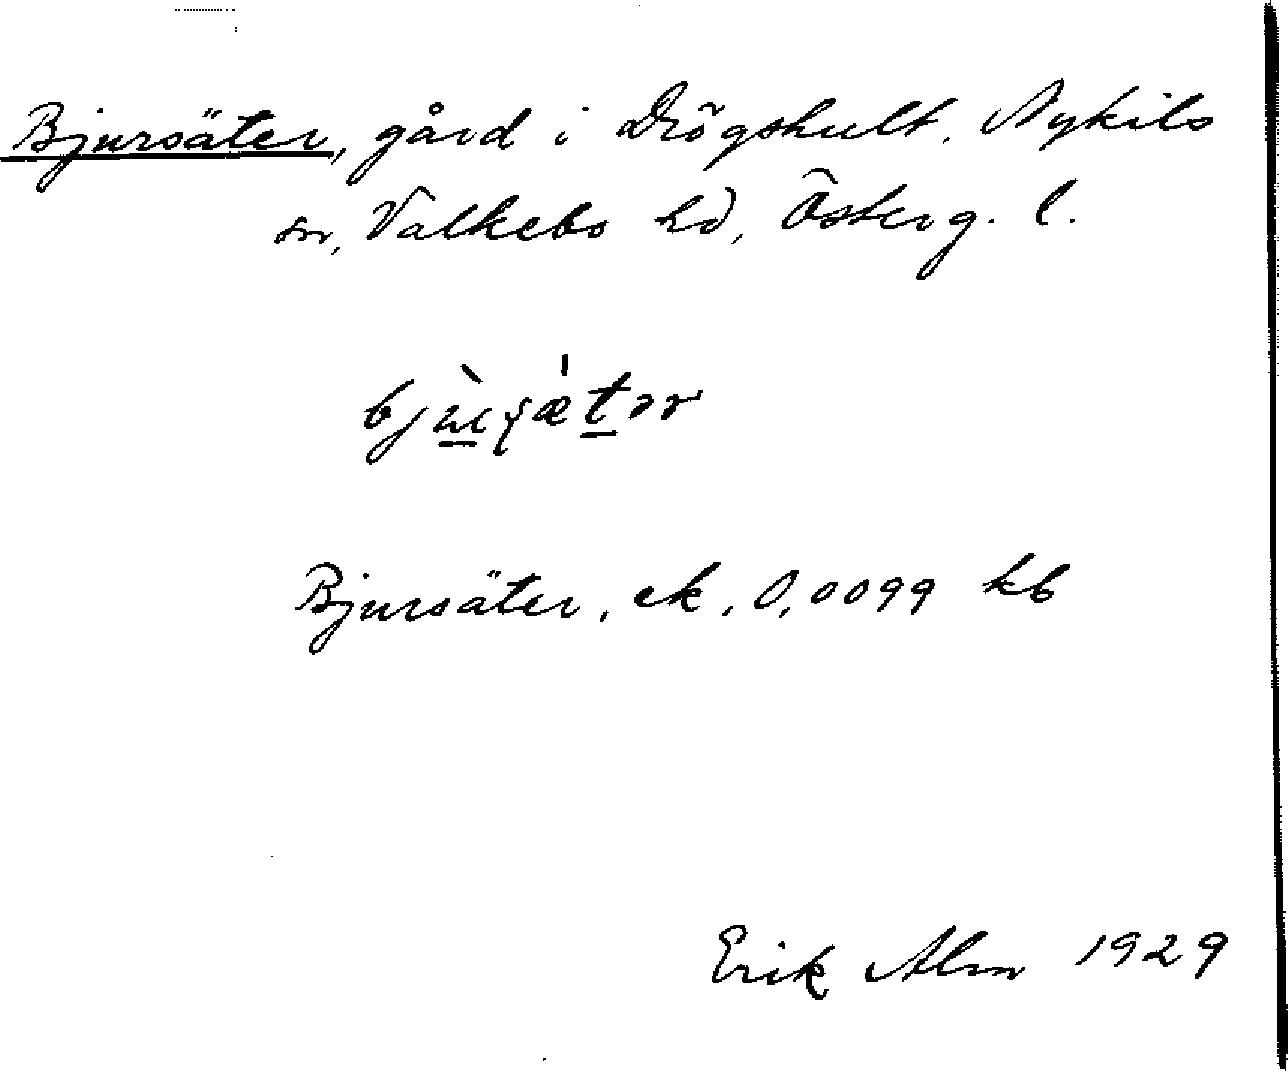 Bjursäter, gård i Drögshult, Nykils
sn, Valkebo hd, Österg. l.
Bjursäter, ek, 0,0099 kb
Erik Alm 1929